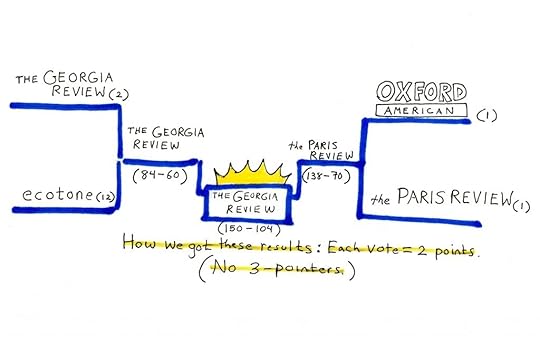 THE GEORGIA
REVIEW (2)
ecotone (12)
THE GEORGIA
REVIEW
(84-60)
THE GEORGIA
REVIEW
(150-104)
the PARIS
REVIEW
(138-70)
OXFORD
AMERICAN
(1)
the PARIS REVIEW (1)
How we got these results: Each vote = 2 points.
(No 3-pointers.)